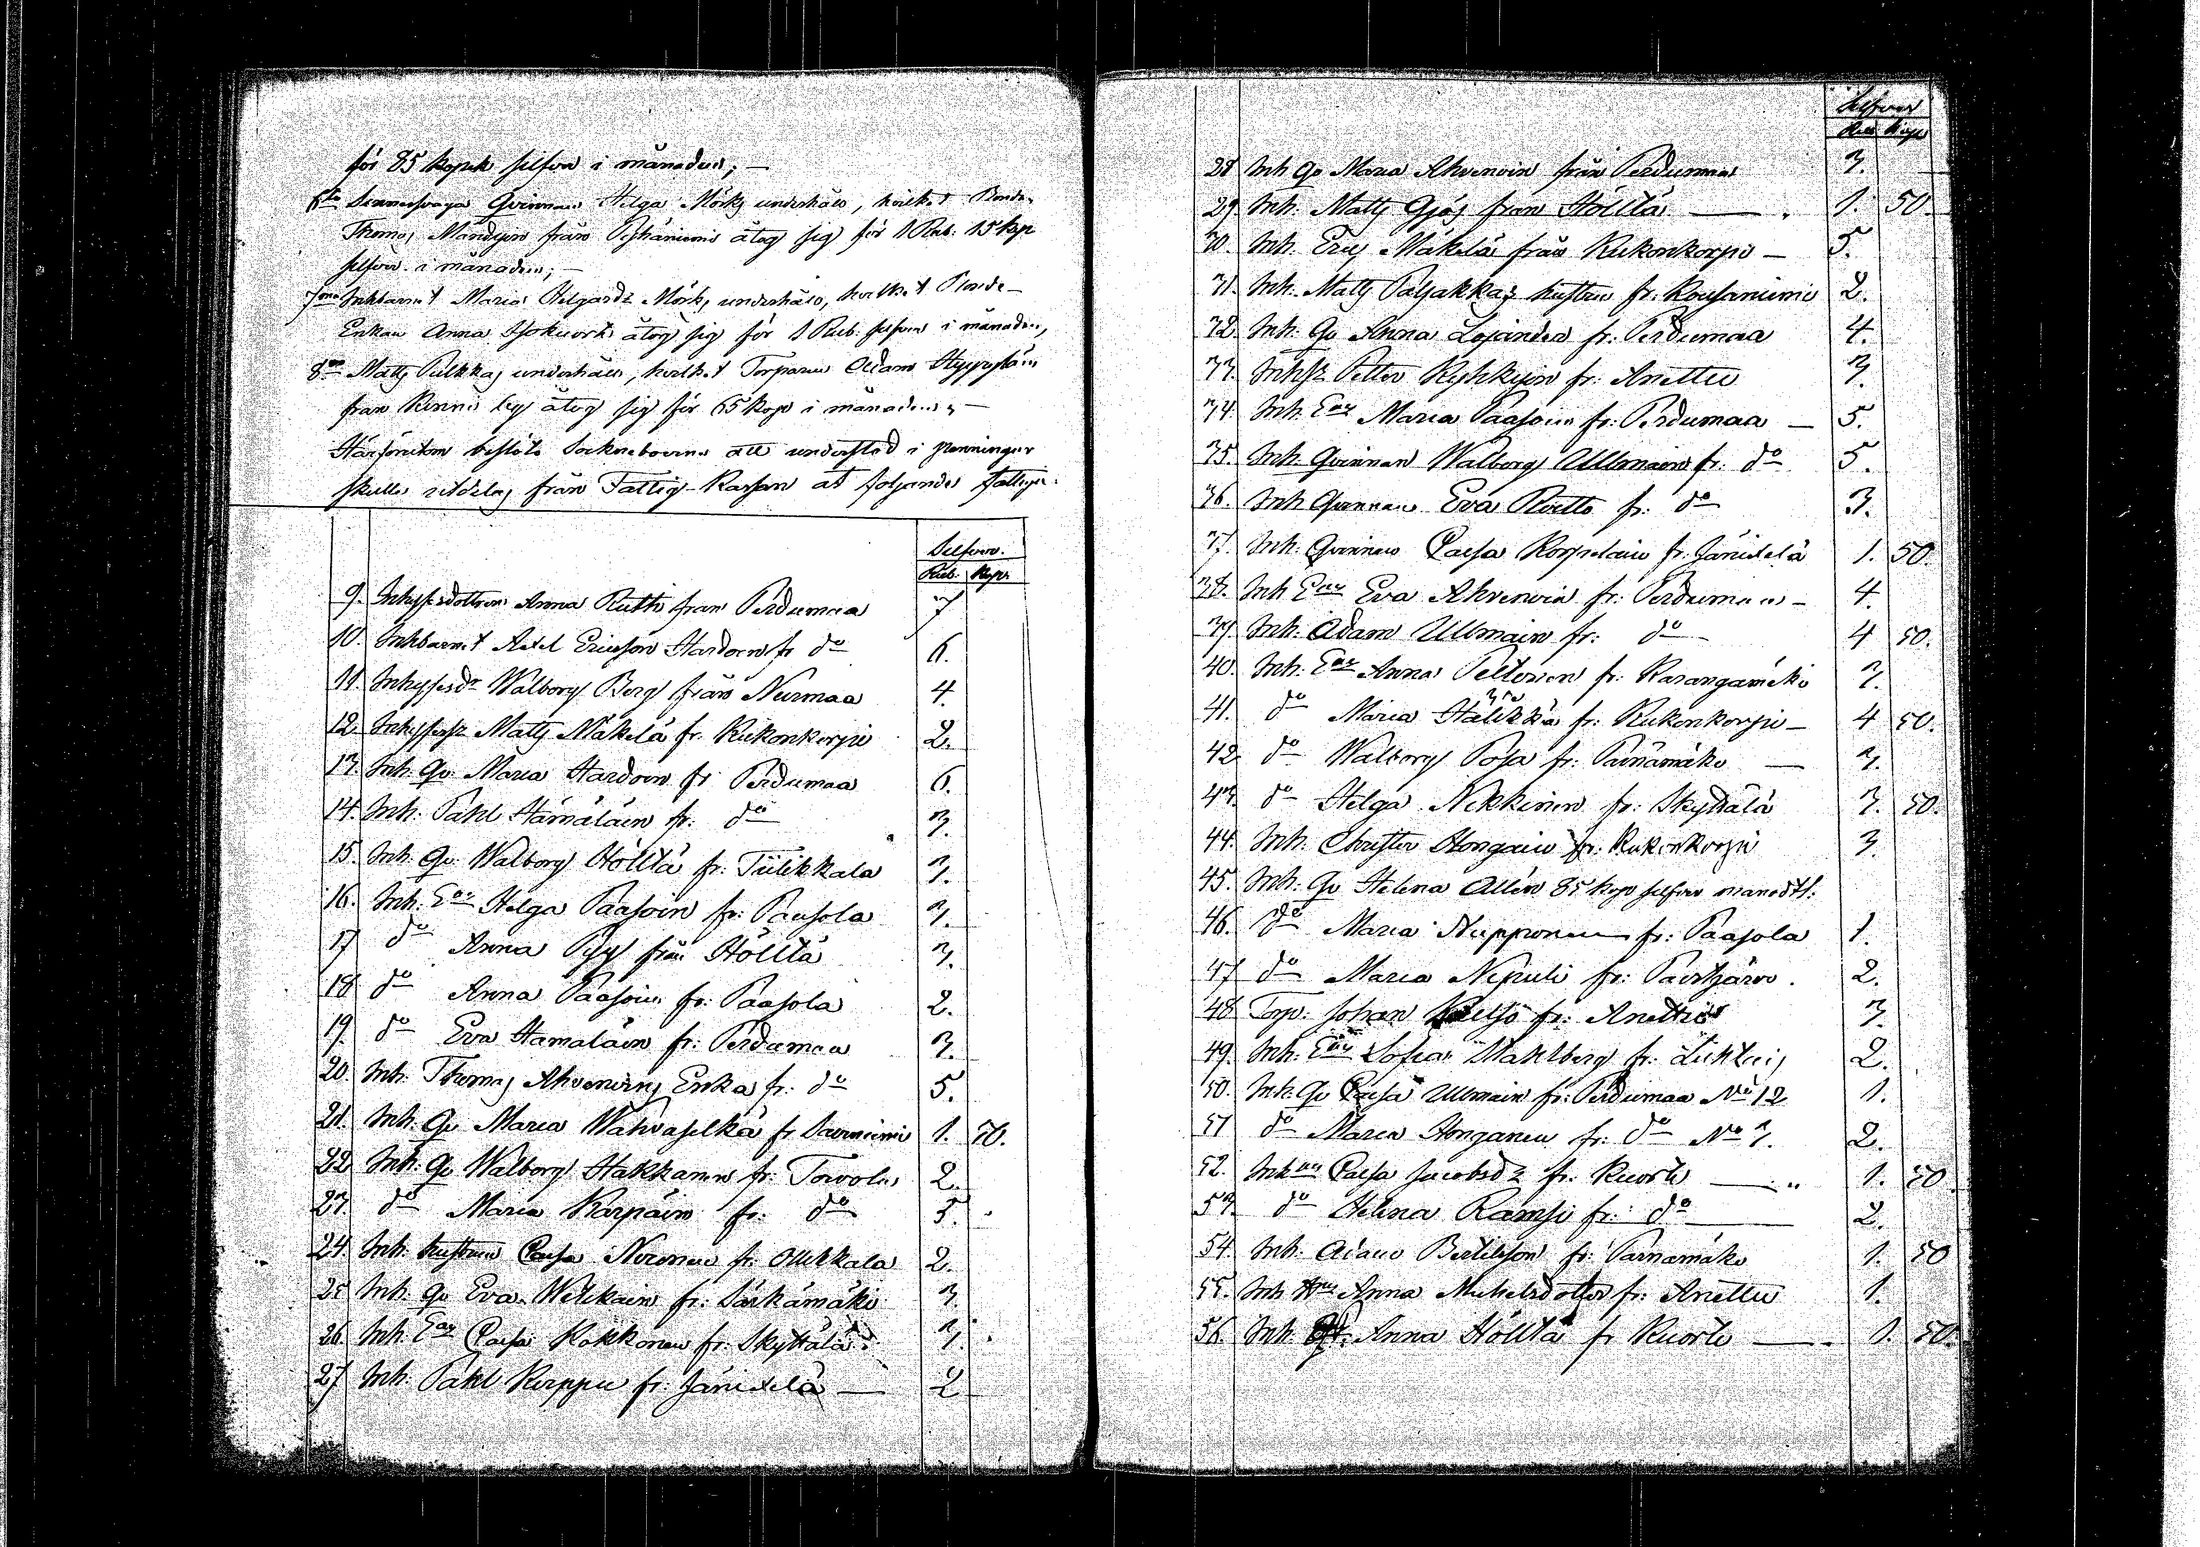 för 85 kopek silfver i månaden; —
6te Sinnessvaga Qvinnan Helga Mörks underhåll, hvilket Bonden
Thomas Mandyn från åtog sig för 1 Rub. 15 kop
silfver i månaden; —
7mo Inhbarnet Maria Helgasdr Mörks underhåll, hvilket Bonde-
Enkan Anna åtog sig för 1 Rub. silfver i månaden,
8vo Matts Pulkkas underhåll, hvilket Torparen Adam
från åtog sig för 65 kop i månaden; —
Härförutom beslöto Sockneboerne att understöd i penningar
skulle utdelas från Fattig-Kassan åt följande fattige:
Silfver.
Rub. Kop.
9. Inhysesdottren Anna Rutti från Perdumaa 7
10. Inhbarnet Axel Ericsson Hardoen fr do 6.
11. Inhysesdr Walborg Berg från Nurmaa 4.
12. Matts Mäkelä fr. Kukonkorpi 2.
13. Inh. Qv. Maria Hardoin fr Perdumaa 6.
14. Inh. Påhl Hämäläin fr. do 3.
15. Inh. Qv. Walborg Hölttä fr. Tiilikkala 1.
16. Inh. Ean Helga Paasoin fr. Paasola 3.
17 do Anna Pysy från Hölttä 3.
18 do Anna Paasoin fr. Paasola 2.
19. do Eva Hämäläin fr. Perdumaa 3.
20. Inh. Thomas Ahvenains Enka fr. do 5.
21. Inh. Qv Maria Wahvaselkä fr Saverniemi 1. 50.
22 Inh. Qv Walborg Hakkanen fr. Torvola 2.
23. do Maria Karpain fr. do 5.
24. Inh. hustrun Caisa Nironen fr. Ollikkala 2.
25 Inh. Qv Eva Wilikain fr. Särkämäki 3.
26. Inh. Ean Caisa Kokkonen fr. Skyttälä 3.
27 Inh. Påhl Kirppu fr. Jänixelä — 2
Silfver
Rub Kop
28 Inh Qv Maria Ahvenain från Perdumaa 3.
29 Inh. Matts Gjös från Hölttä — 1. 50
30. Inh. Eric Mäkelä från Kukonkorpi — 5.
31. Inh. Matts Paljakkas hustru fr. Rousaniemi 2.
32. Inh. Qv Anna Lojander fr. Perdumaa 4.
33. Petter Kyhkyin fr. Anttu 3.
34. Inh. Ean Maria Paasoin fr. Perdumaa — 5.
35. Inh. Qvinnan Walborg Ullmain fr. do 5.
36. Inh Qvinnan Eva Rutto fr. do 3.
37. Inh. Qvinnan Caisa Korpelain fr. Jänixelä 1. 50.
38. Inh Ean Eva Ahvenain fr. Perdumaa — 4.
39. Inh. Adam Ullmain fr. do — 4 50.
40. Inh. Ean Anna Peltonen fr. Karangamäki 3.
41. do Maria fr. Kukonkorpi — 4 50.
42 do Walborg Posa fr. Pärnämäki — 3.
43. do Helga Nikkinen fr. Skyttälä 3. 50.
44. Inh. Christer Hongain fr. Kukonkorpi 3.
45. Inh. Qv Helena Allén 85 kop silfver månadtl.
46. do Maria Nupponen fr. Paasola 1.
47 do Maria Nipuli fr. Pavtsjärvi. 2.
48 Torp. Johan fr. Anttu 3.
49. Inh. Ean Sofia Wahlberg fr. 2.
50. Inh. Qv Caisa Ullmain fr. Perdumaa No 12 1.
51 do Maria Honganen fr. do No 3. 2.
52. Caisa Jacobsdr fr. Kuorti — 1. 50
53. do Helina Ramsi fr. do — 2.
54. Inh. Adam Bertilsson fr. Pärnämäki 1. 50
55. Inh Anna Michelsdotter fr. Anttu 1.
56. Inh. Anna Hölttä fr Kuorti — 1. 50.